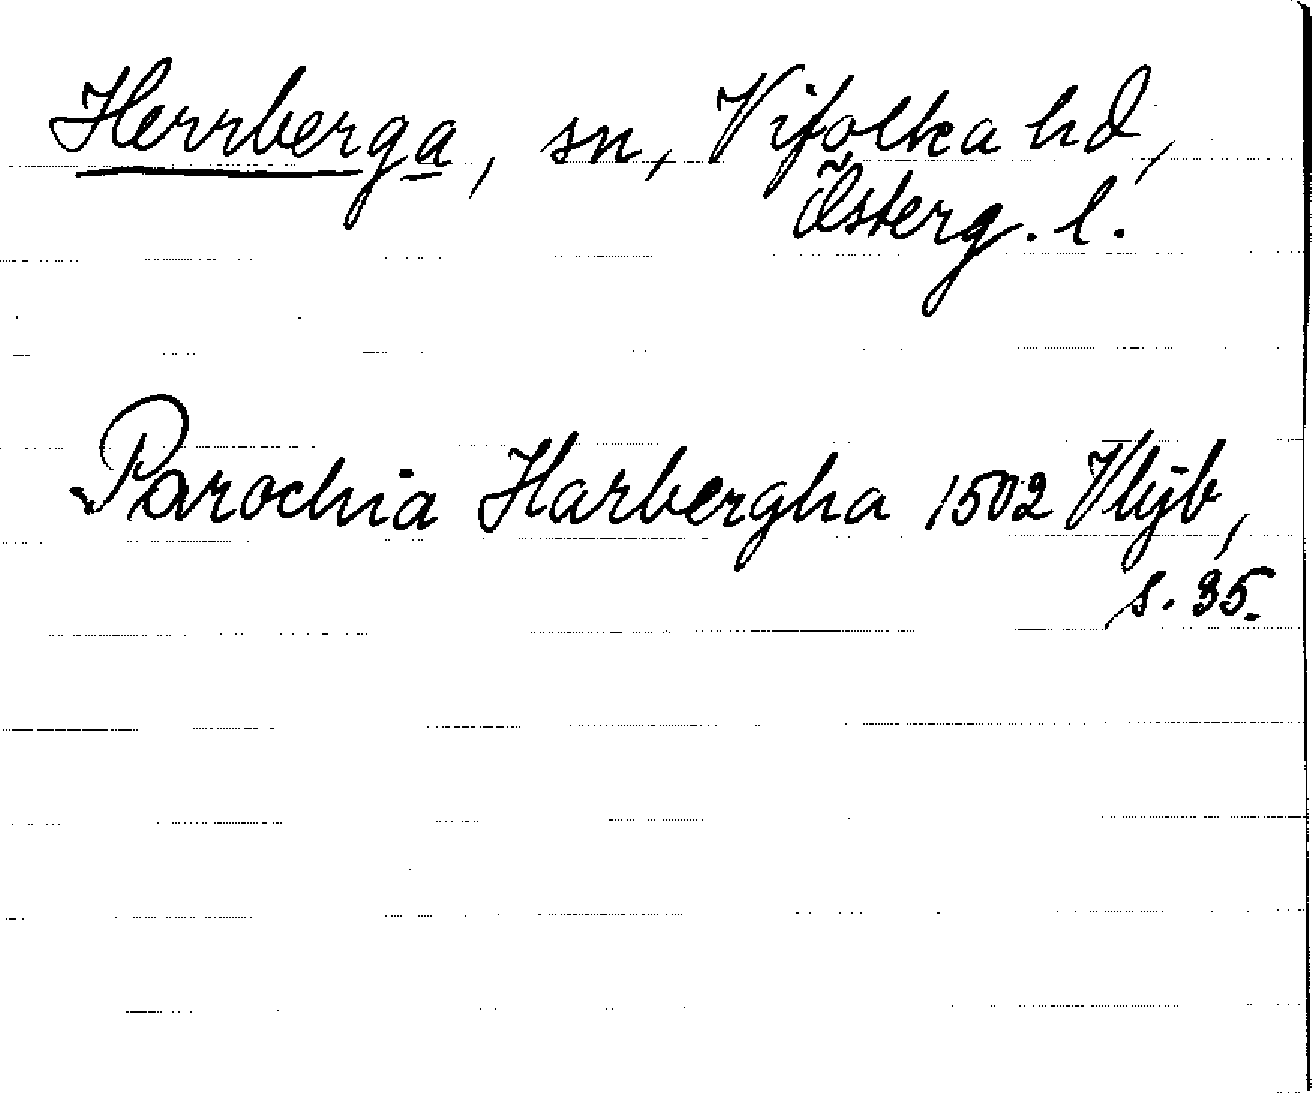 Herrberga, sn, Vifolka hd,
Österg. l.
Parochia Harbergha 1502 Vkjb,
s. 35.